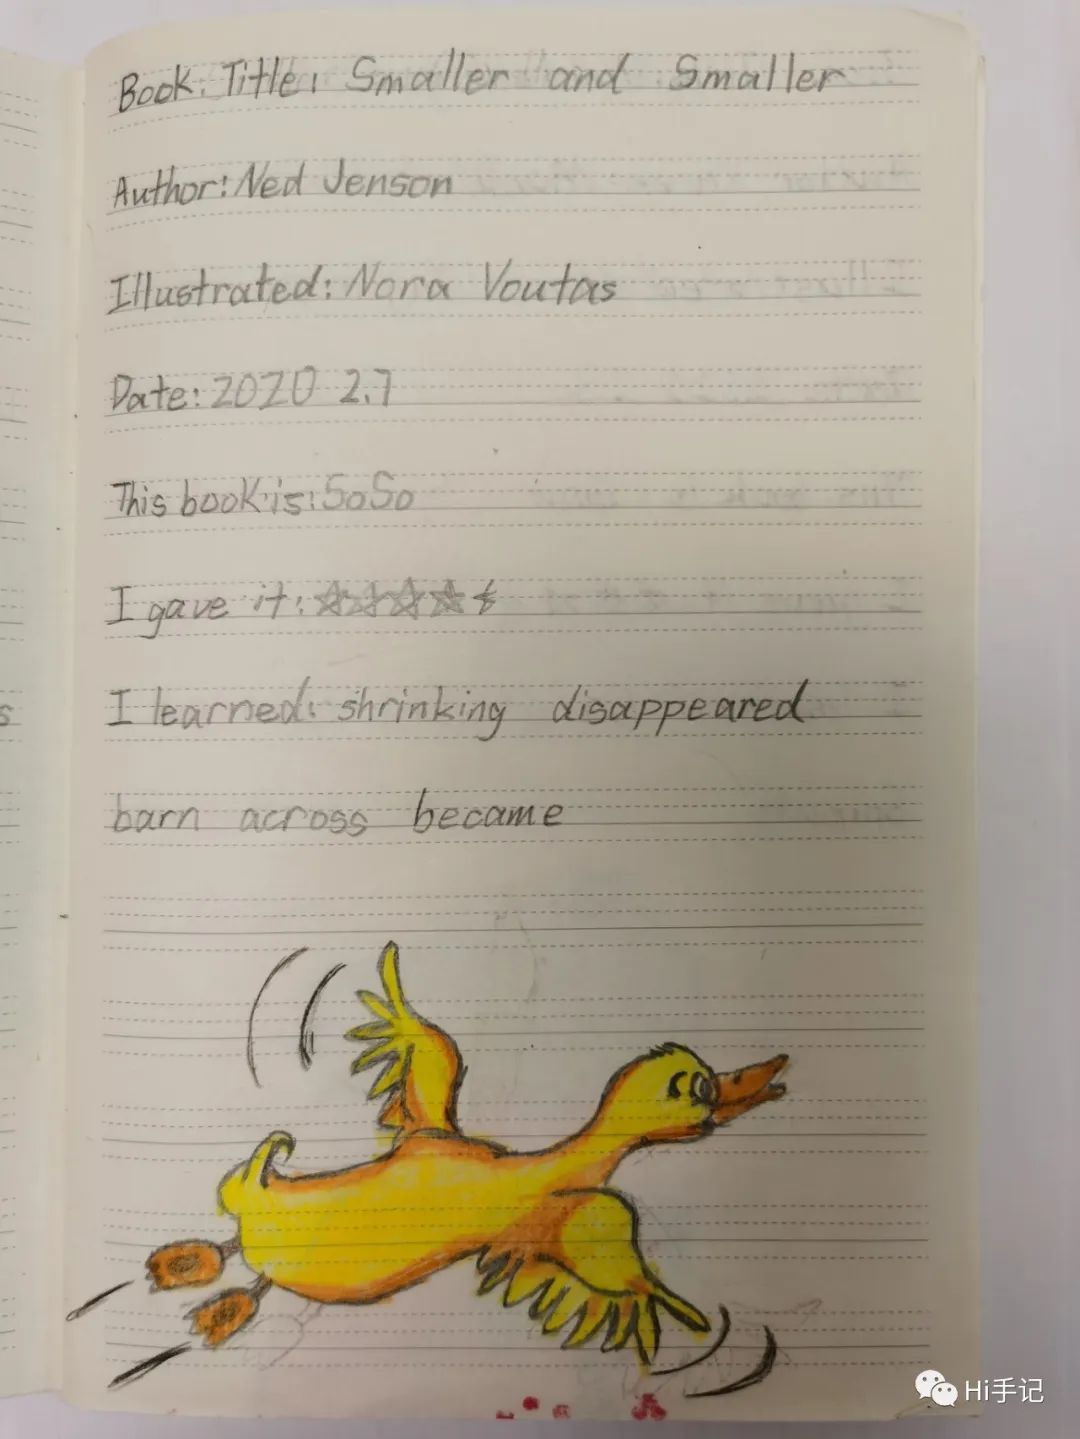 Book: Title: Smaller and Smaller
Author: Ned Jenson
Illustrated: Nora Voutas
Date: 2020 2.7
This book is: SoSo
I gave it: ☆☆☆☆
I learned: shrinking disappeared
barn across became
s
Hi手记